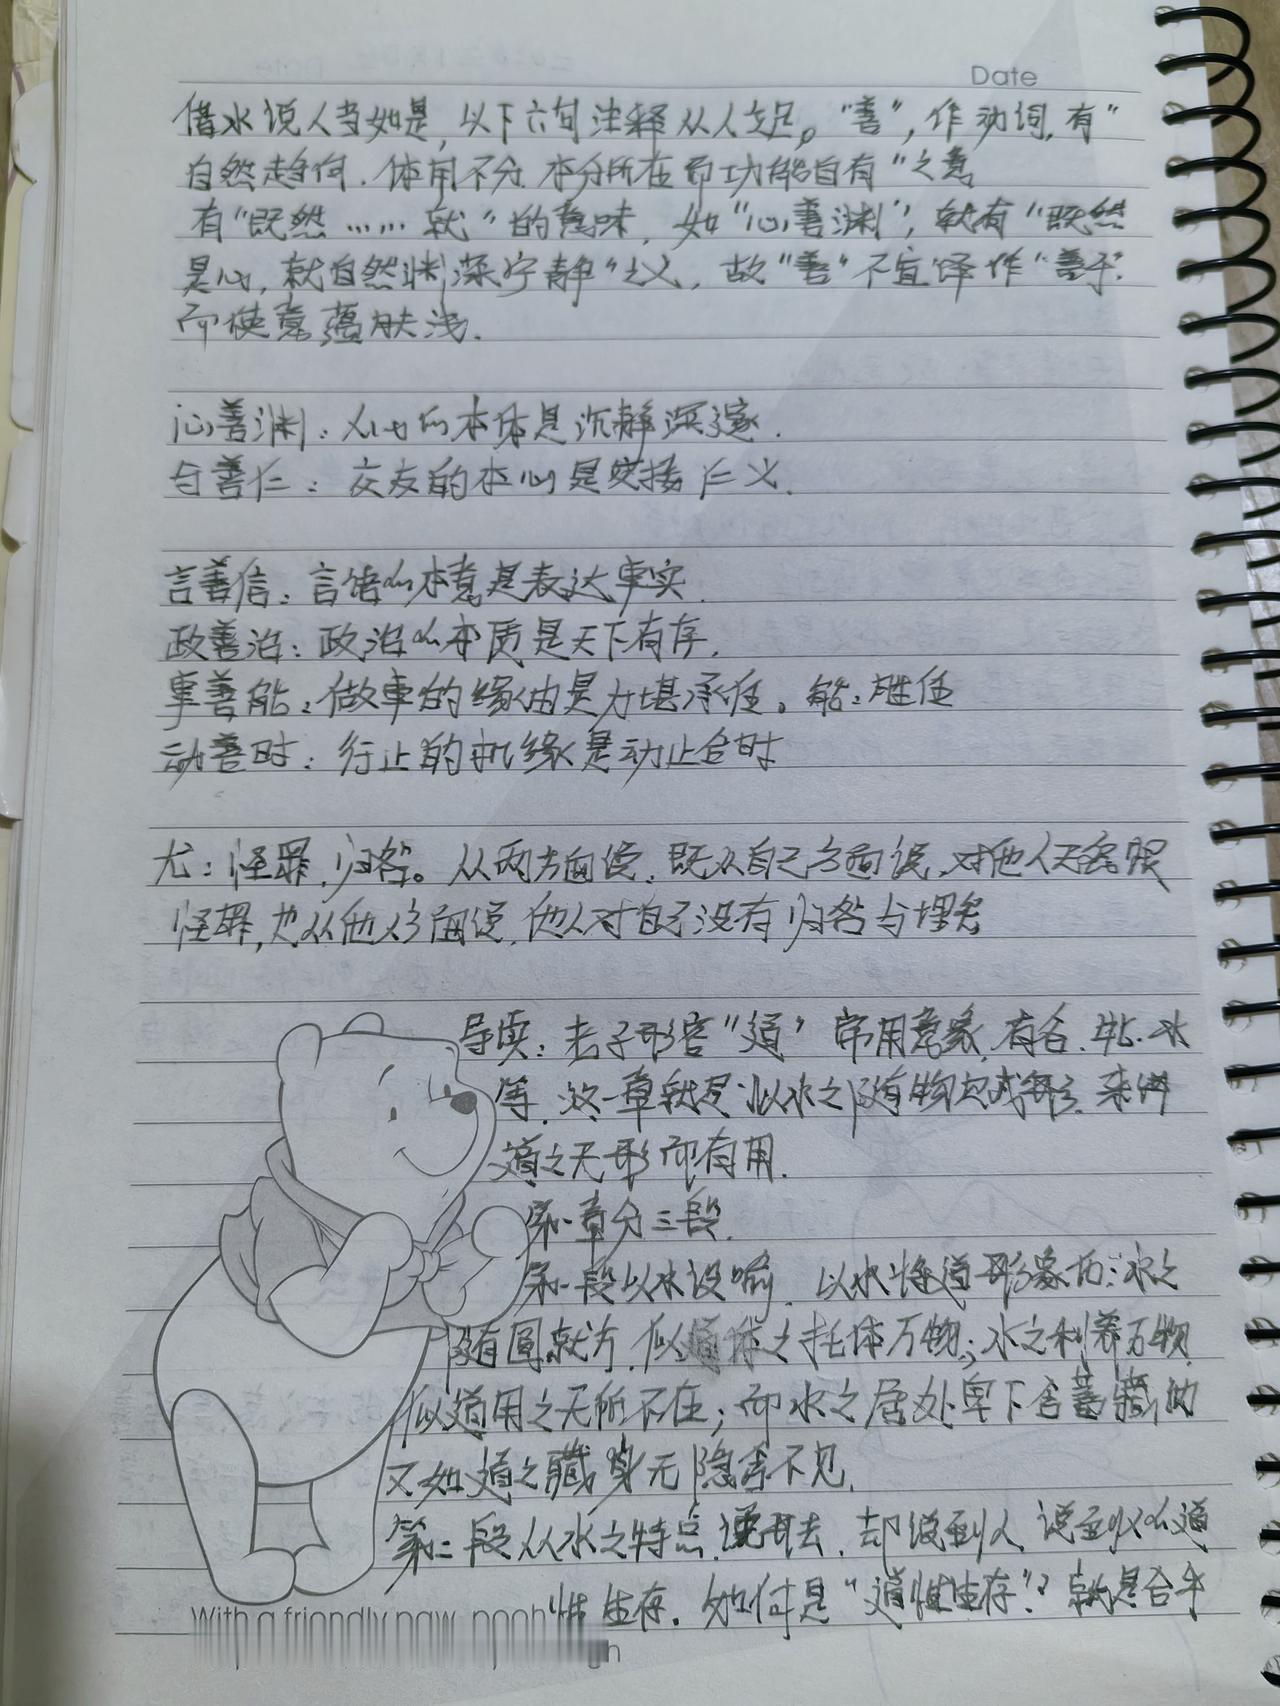 Date
借水说人当如是, 以下六句注释从人文足。"善", 作动词, 有"
自然趋向. 体用不分. 本分所在而功能自有"之意
有"既然……就"的意味, 如"心善渊", 就有"既然
是心, 就自然渊深宁静"之义, 故"善"不宜译作"善于"
而使意蕴肤浅.
心善渊: 人心的本体是沉静深邃.
与善仁: 交友的本心是 仁义.
言善信: 言语的本意是表达事实.
政善治: 政治的本质是天下有存.
事善能: 做事的缘由是力堪承任。能: 胜任
动善时: 行止的机缘是动止合时
尤: 怪罪, 归咎。从两方面说, 既从自己方面说, 对他人无怨恨
怪罪, 也从他人方面说, 他人对自己没有归咎与埋怨
导读: 老子形容"道"常用意象, 有谷. 牝. 水
等. 这一章就是以水之随有物 成形, 来讲
道之无形而有用.
第一章分三段.
第一段以水设喻, 以水将道形象的: 水之
随圆就方, 似道体之托体万物; 水之利养万物,
似道用之无所不在; 而水之居处卑下含蓄藏纳
又如道之藏身无隐舍不见.
第二段从水之特点 开去, 却说到人, 说到 道
性生存. 如何是"道性生存"? 就是合乎
With a friendly paw, pooh